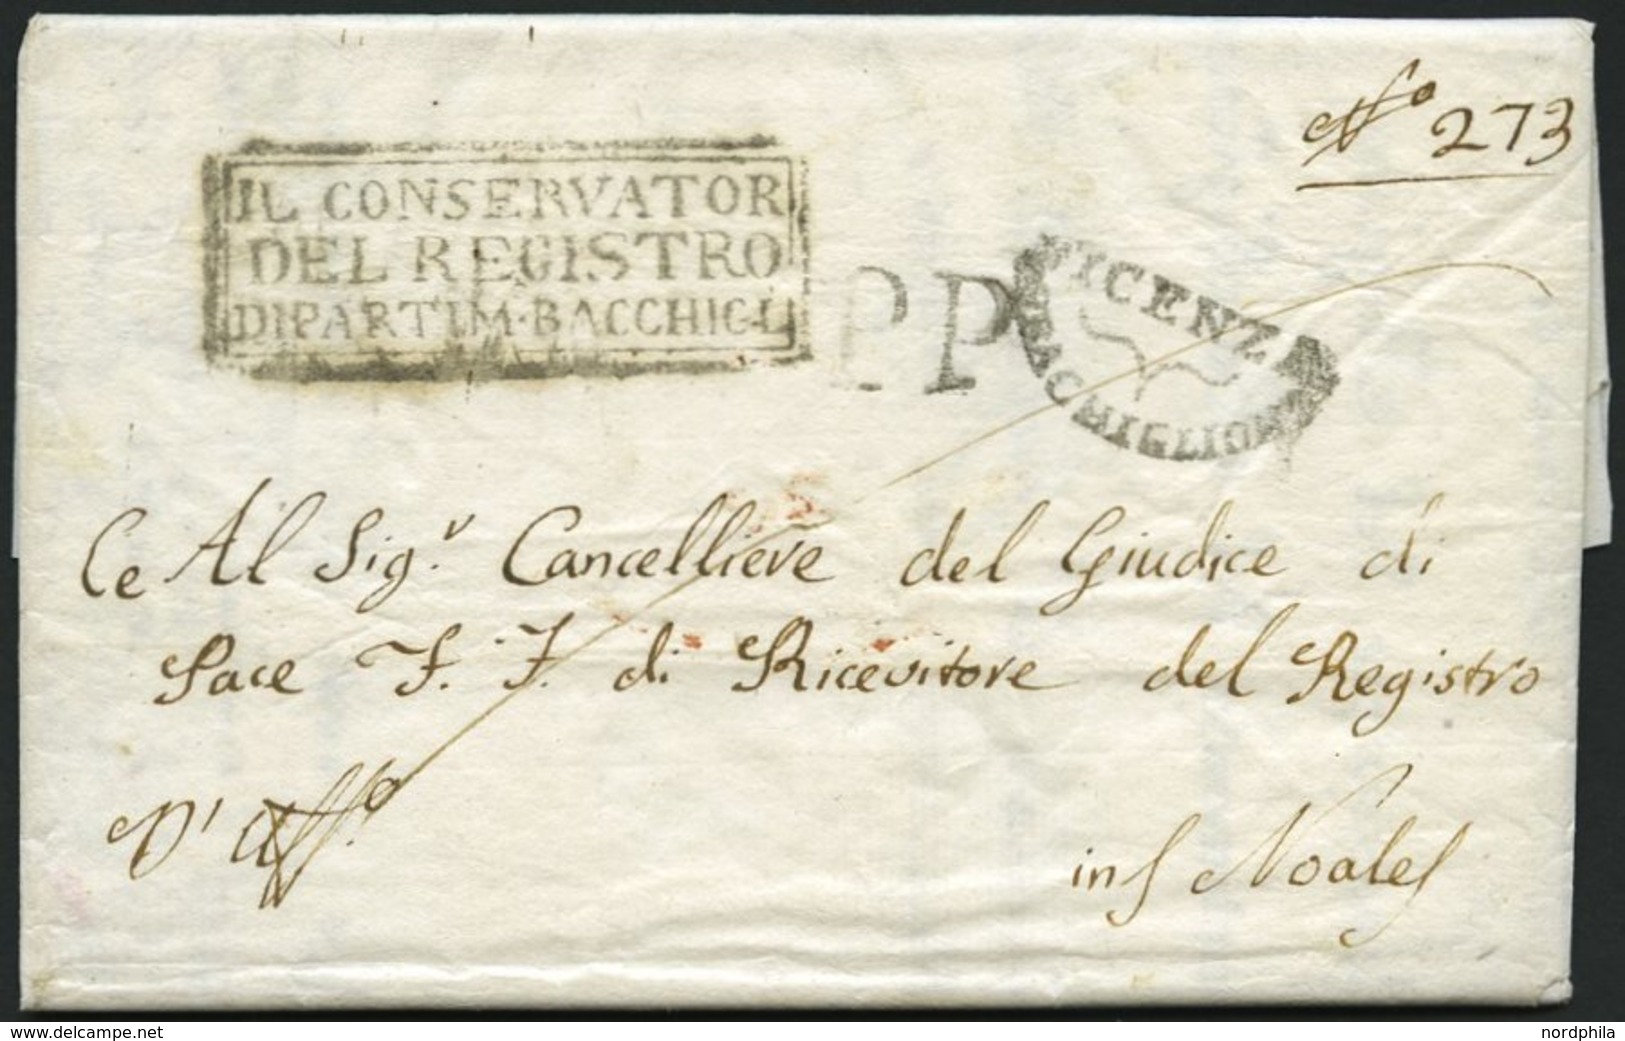 No 273
IL CONSERVATOR
DEL REGISTRO
DIPARTIM. BACCHIGL
PP
VICENZA
BACCHIGLIONE
Ce Al Sigr. Cancelliere del Giudice di
Pace F. F. di Ricevitore del Registro
D' Uffo
in Noales
www.delcampe.net
nordphila